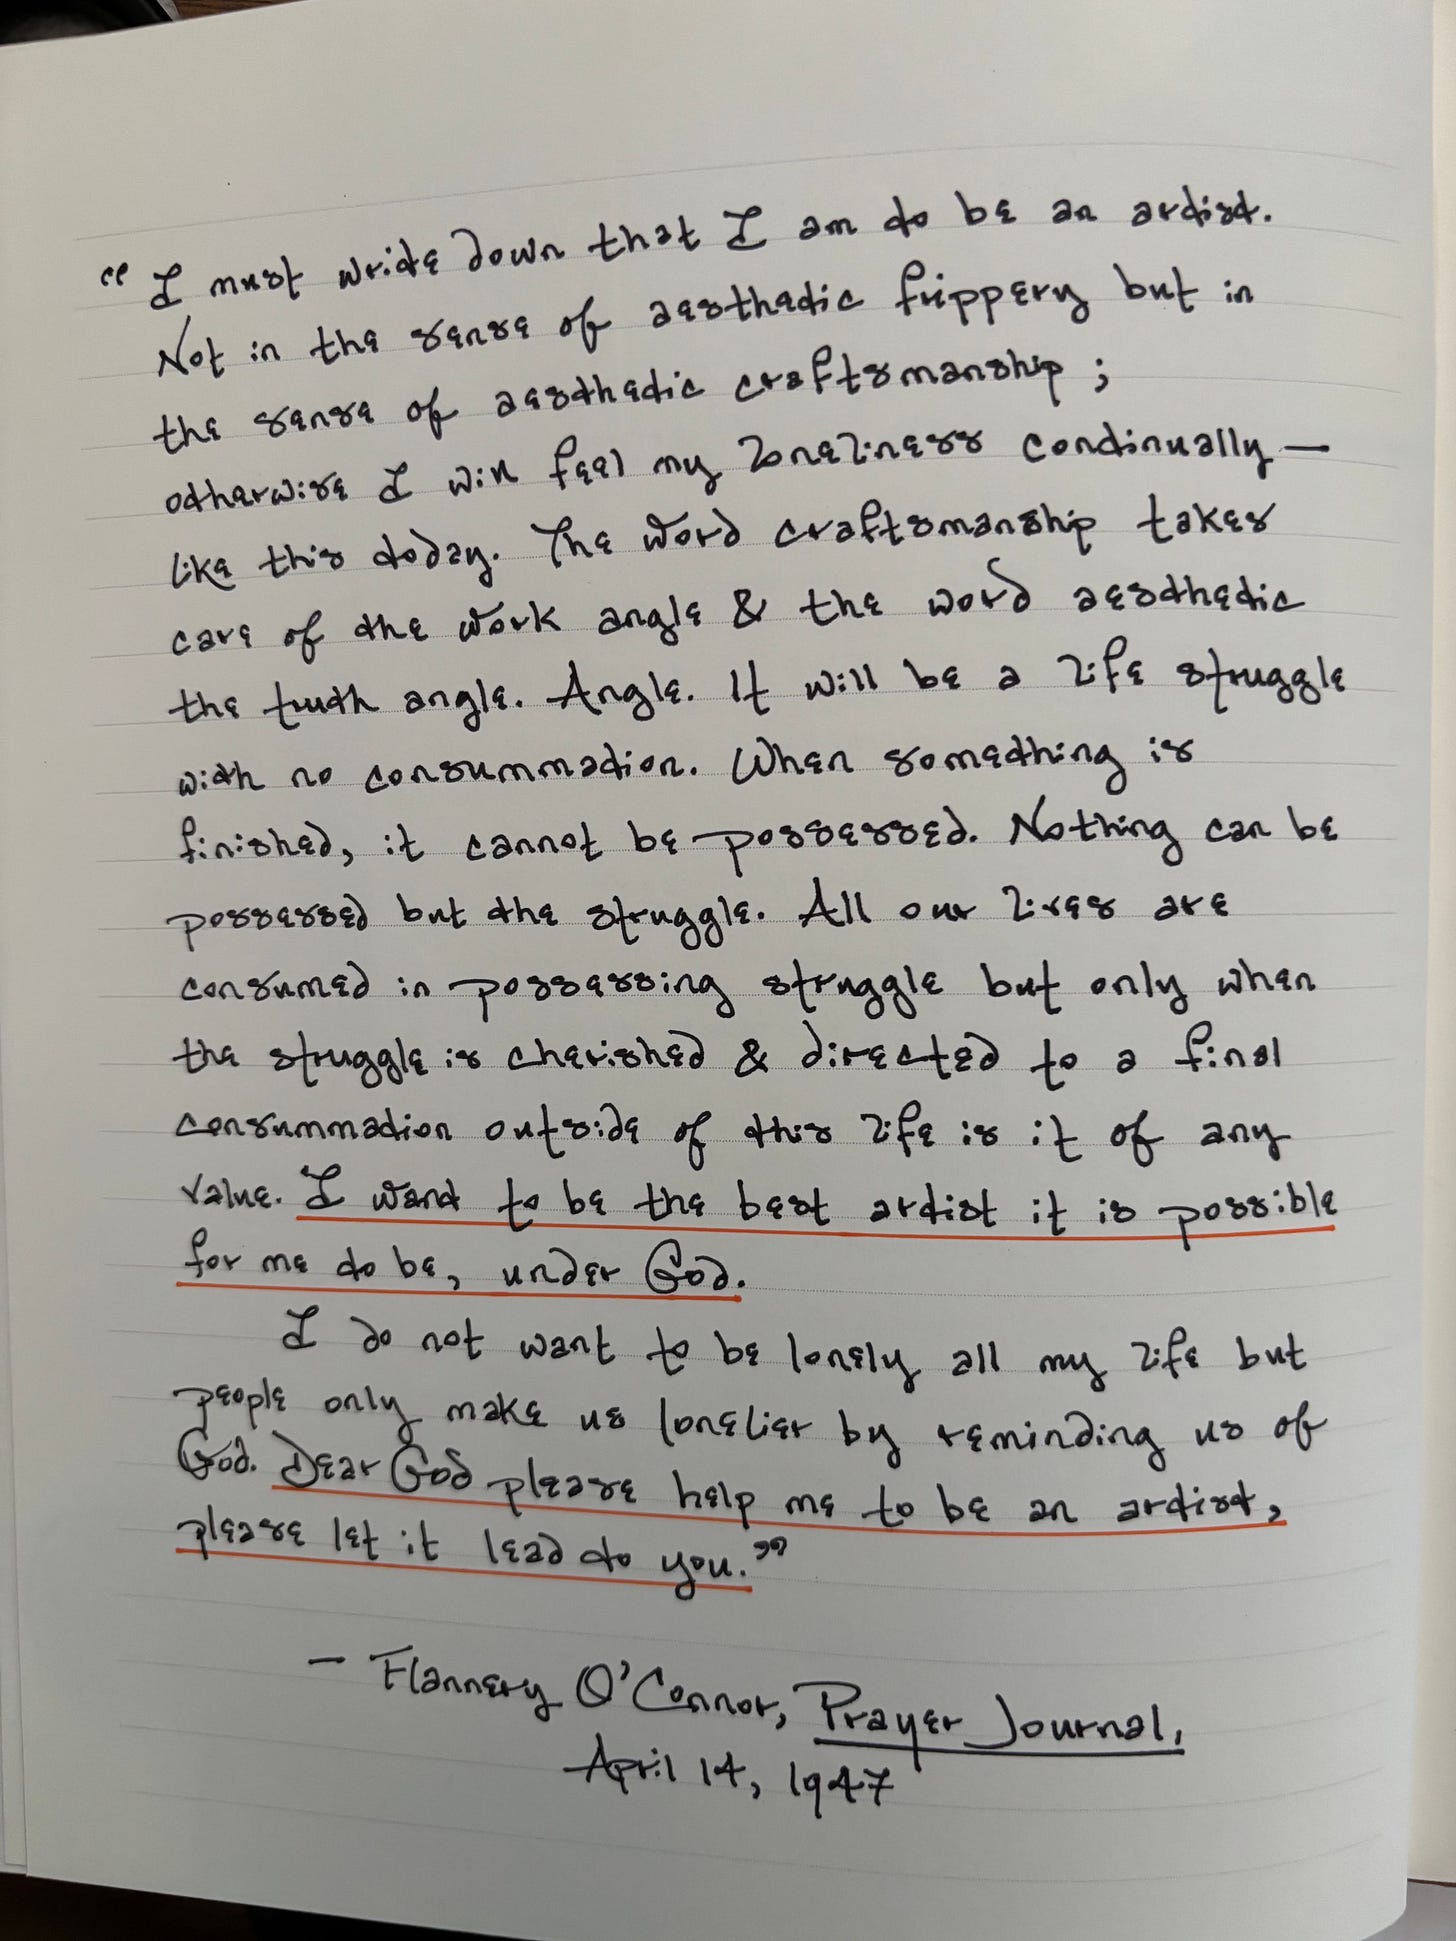 “I must write down that I am to be an artist.
Not in the sense of aesthetic frippery but in
the sense of aesthetic craftsmanship;
otherwise I will feel my loneliness continually—
like this today. The word craftsmanship takes
care of the work angle & the word aesthetic
the truth angle. Angle. It will be a life struggle
with no consummation. When something is
finished, it cannot be possessed. Nothing can be
possessed but the struggle. All our lives are
consumed in possessing struggle but only when
the struggle is cherished & directed to a final
consummation outside of this life is it of any
value. I want to be the best artist it is possible
for me to be, under God.
I do not want to be lonely all my life but
people only make us lonelier by reminding us of
God. Dear God please help me to be an artist,
please let it lead to you.”
– Flannery O'Connor, Prayer Journal,
April 14, 1947